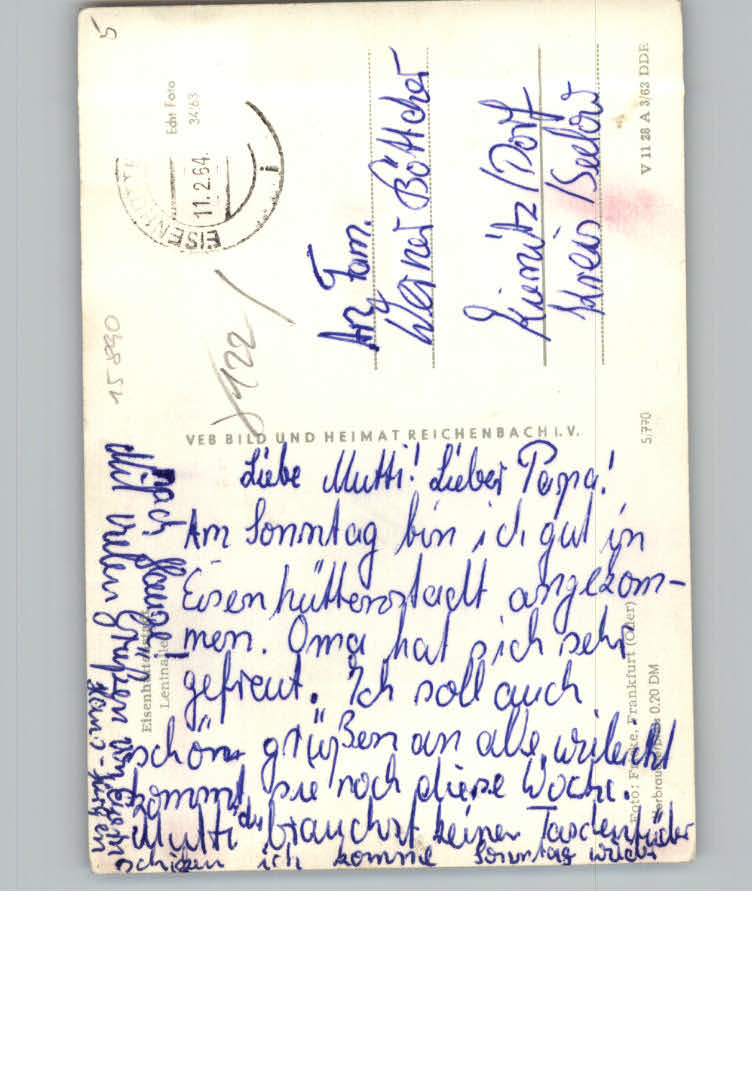 Liebe Mutti! Lieber Papa!
Am Sonntag bin ich gut in
Eisenhüttenstadt angekom-
men. Oma hat sich sehr
gefreut. Ich soll auch
schön grüßen an alle, vileicht
kommt sie noch diese Woche.
Mutti du brauchst keiner Taschentücher
schicken ich komme Sonntag wieder
nach Hause!
Mit vielen Grüßen von euerm
Hans-Jürgen
An Fam.
Werner Böttcher
Kienitz/Dorf
Kreis/Seelow
VEB BILD UND HEIMAT REICHENBACH I. V.
Eisenhüttenstadt
Leninallee
Foto: Franke, Frankfurt (Oder)
Verbraucherpreis 0.20 DM
S/770
V 11 28 A 3/63 DDR
Echt Foto
34/63
EISENHÜTT
11.2.64.
i
15890
5